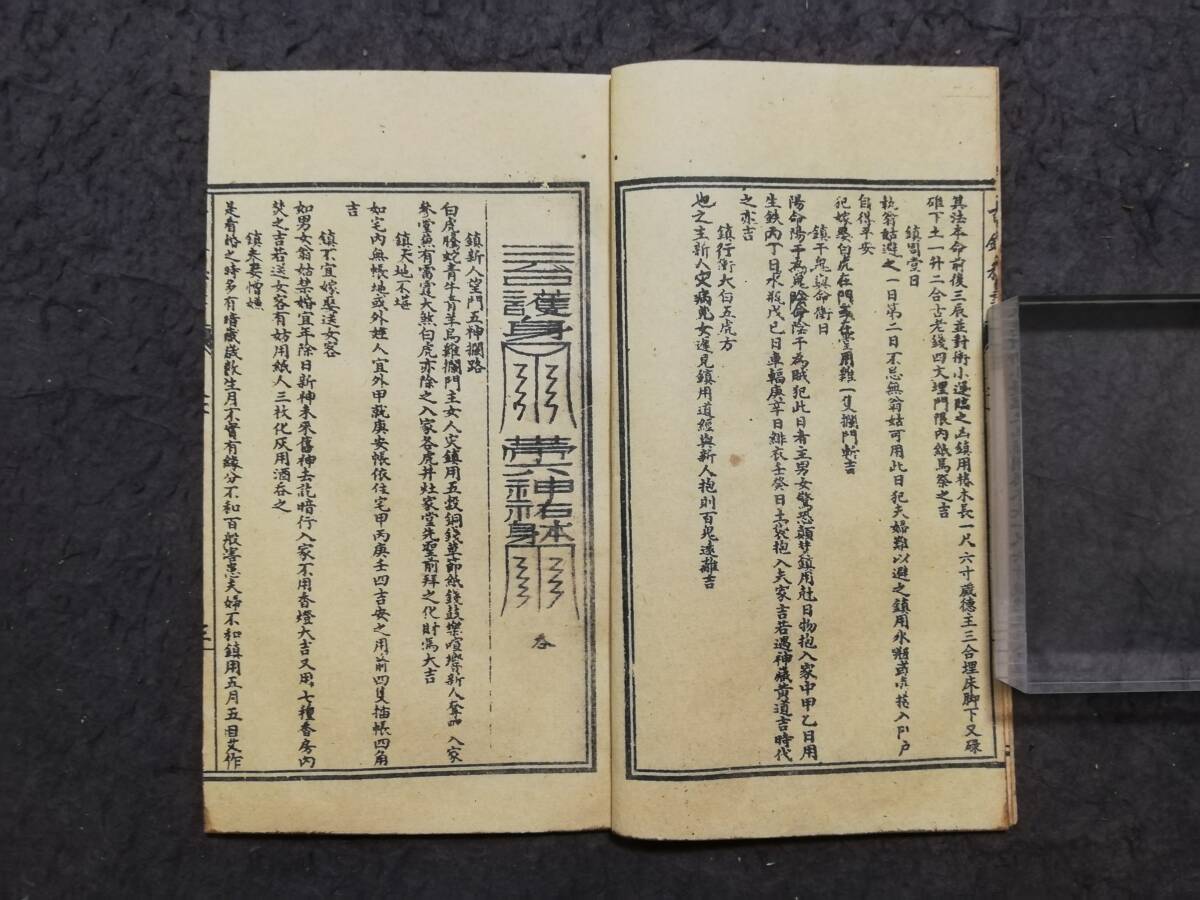 其法本命前後三辰並對衝小運臨之凶鎮用椿木長一尺六寸歲德主三合埋床脚下又碌
碓下土一升二合古老錢四文埋門限內紙馬祭之吉
鎮周堂日
執翁姑避之一日第二日不忌無翁姑可用此日犯夫婦難以避之鎮用水瓶或 花入門戶
自得平安
犯嫁娶白虎在門或在堂用雞一隻攔門斬吉
鎮干鬼與命衝日
陽命陽干為鬼陰命陰干為賊犯此日者主男女驚恐顛 鎮用尅日物抱入家中甲乙日用
生鉄丙丁日水瓶戊己日車輻庚辛日緋衣壬癸日土袋抱入夫家吉若遇神藏黄道吉時代
之亦吉
鎮行衝大白五虎方
也之主新人灾病鬼女邊見鎮用道經與新人抱則百鬼遠離吉
三台護身 帶六神佑本神身
吞
鎮新人望門五神攔路
白虎螣蛇青牛青羊烏雞攔門主女人灾鎮用五穀銅錢草節紙錢鼓樂喧嚮新人 入家
參堂蕉有雷霆大煞白虎亦除之入家各虎井灶家堂先聖前拜之化財焉大吉
鎮天地不
如宅內無帳地或外姓人宜外甲就庚安帳依住宅甲丙庚壬四吉安之用箭四隻插帳四角
吉
鎮不宜嫁娶送女客
如男女翁姑禁婚宜年除日新神未來舊神去訖暗行入家不用香燈大吉又用七種香房內
焚之吉若送女客有妨用紙人三枚化灰用酒吞之
鎮夫妻憎嫌
是看婚之時多有暗藏歲數生月不實有緣分不和百般害患夫婦不和鎮用五月五日艾作